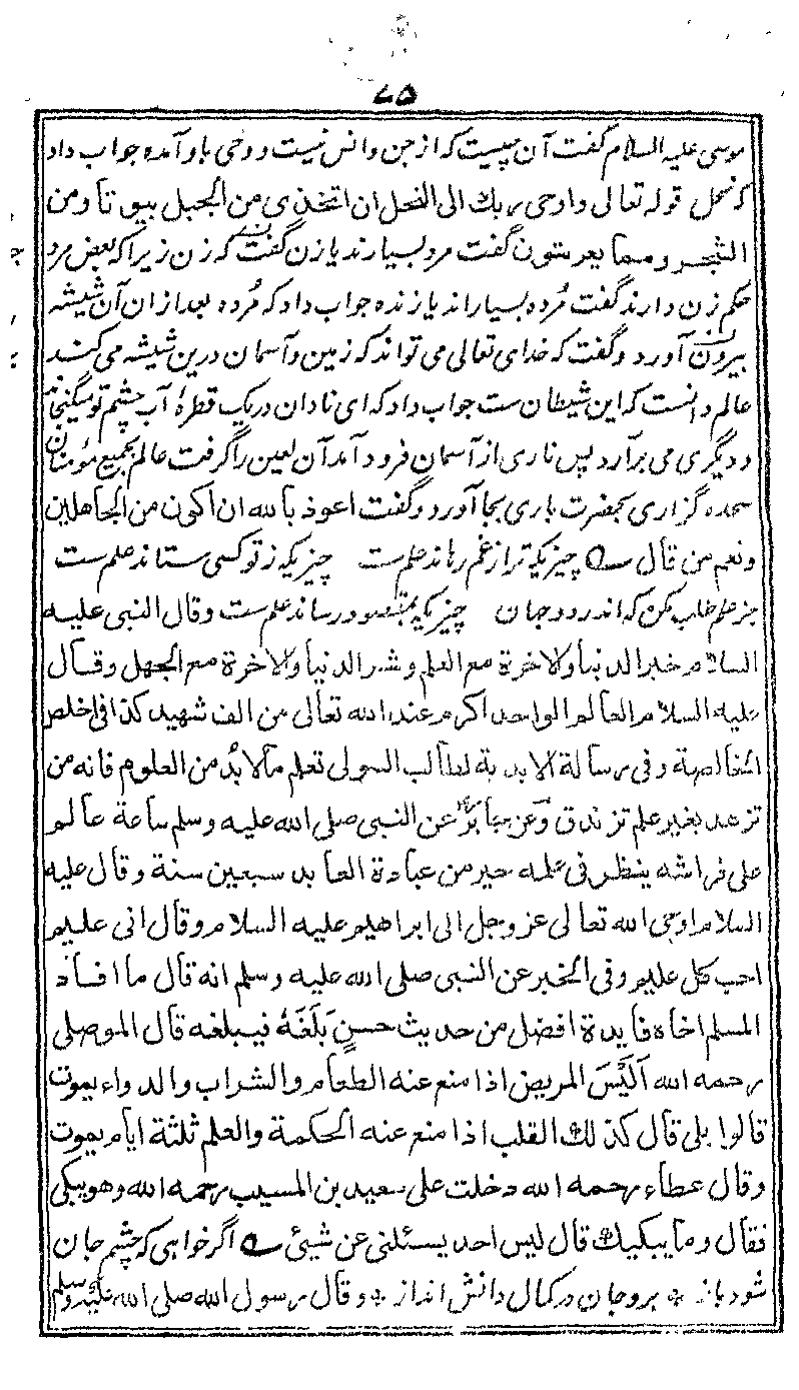 ٧٥
موسی علیه السلام گفت آن چیست که از جن و انس نیست و وحی باو آمده جواب داد
که نحل قوله تعالی و اوحی ربك الی النحل ان اتخذی من الجبال بیوتا و من
الشجر و مما یعرشون گفت مرد بسیارند یا زن گفت که زن زیرا که بعض مرد
حکم زن دارند گفت مُرده بسیاراند یا زنده جواب داد که مُرده بعد ازان آن شیشه
بیرون آورد و گفت که خدای تعالی می تواند که زمین و آسمان درین شیشه می کند
عالم دانست که این شیطان ست جواب داد که ای نادان در یک قطرهٔ آب چشم تو میگنجاند
و دیگری می برآرد پس ناری از آسمان فرود آمد آن لعین را گرفت عالم بجمیع مؤمنان
سجده گزاری بحضرت باری بجا آورد و گفت اعوذ بالله ان اکون من الجاهلین
و نعم من قال چیزیکه ترا ز غم رهاند علم ست چیزیکه ز تو کسی ستاند علم ست
جز علم طلب مکن که اندر دو جهان چیزیکه بمقصود رساند علم ست وقال النبی علیه
السلام خیر الدنیا والاخرة مع العلم وشر الدنیا والاخرة مع الجهل وقال
علیه السلام العالم الواحد اکرم عند الله تعالی من الف شهید کذا فی اخلص
الخالصة وفی رسالة لابدیة لطالب المولی تعلم مالابُدّ من العلوم فانه من
تزهد بغیر علم تزندق وعن جابرؓ عن النبی صلی الله علیه وسلم ساعة عالم
علی فراشه ینظر فی علمه خیر من عبادة العابد سبعین سنة وقال علیه
السلام اوحی الله تعالی عز وجل الی ابراهیم علیه السلام وقال انی علیم
احب کل علیم وفی الخبر عن النبی صلی الله علیه وسلم انه قال ما افاد
المسلم اخاه فایدة افضل من حدیث حسنٍ بَلَغَهُ فیبلغه قال الموصلی
رحمه الله اَلَیْسَ المریض اذا منع عنه الطعام والشراب والدواء یموت
قالوا بلی قال کذلك القلب اذا منع عنه الحکمة والعلم ثلثة ایام یموت
وقال عطاء رحمه الله دخلت علی سعید بن المسیب رحمه الله وهو یبکی
فقال وما یبکیك قال لیس احد یسئلنی عن شیئ اگر خواهی که چشم جان
شود باز * برو جان در کمال دانش انداز * وقال رسول الله صلی الله علیه وسلم